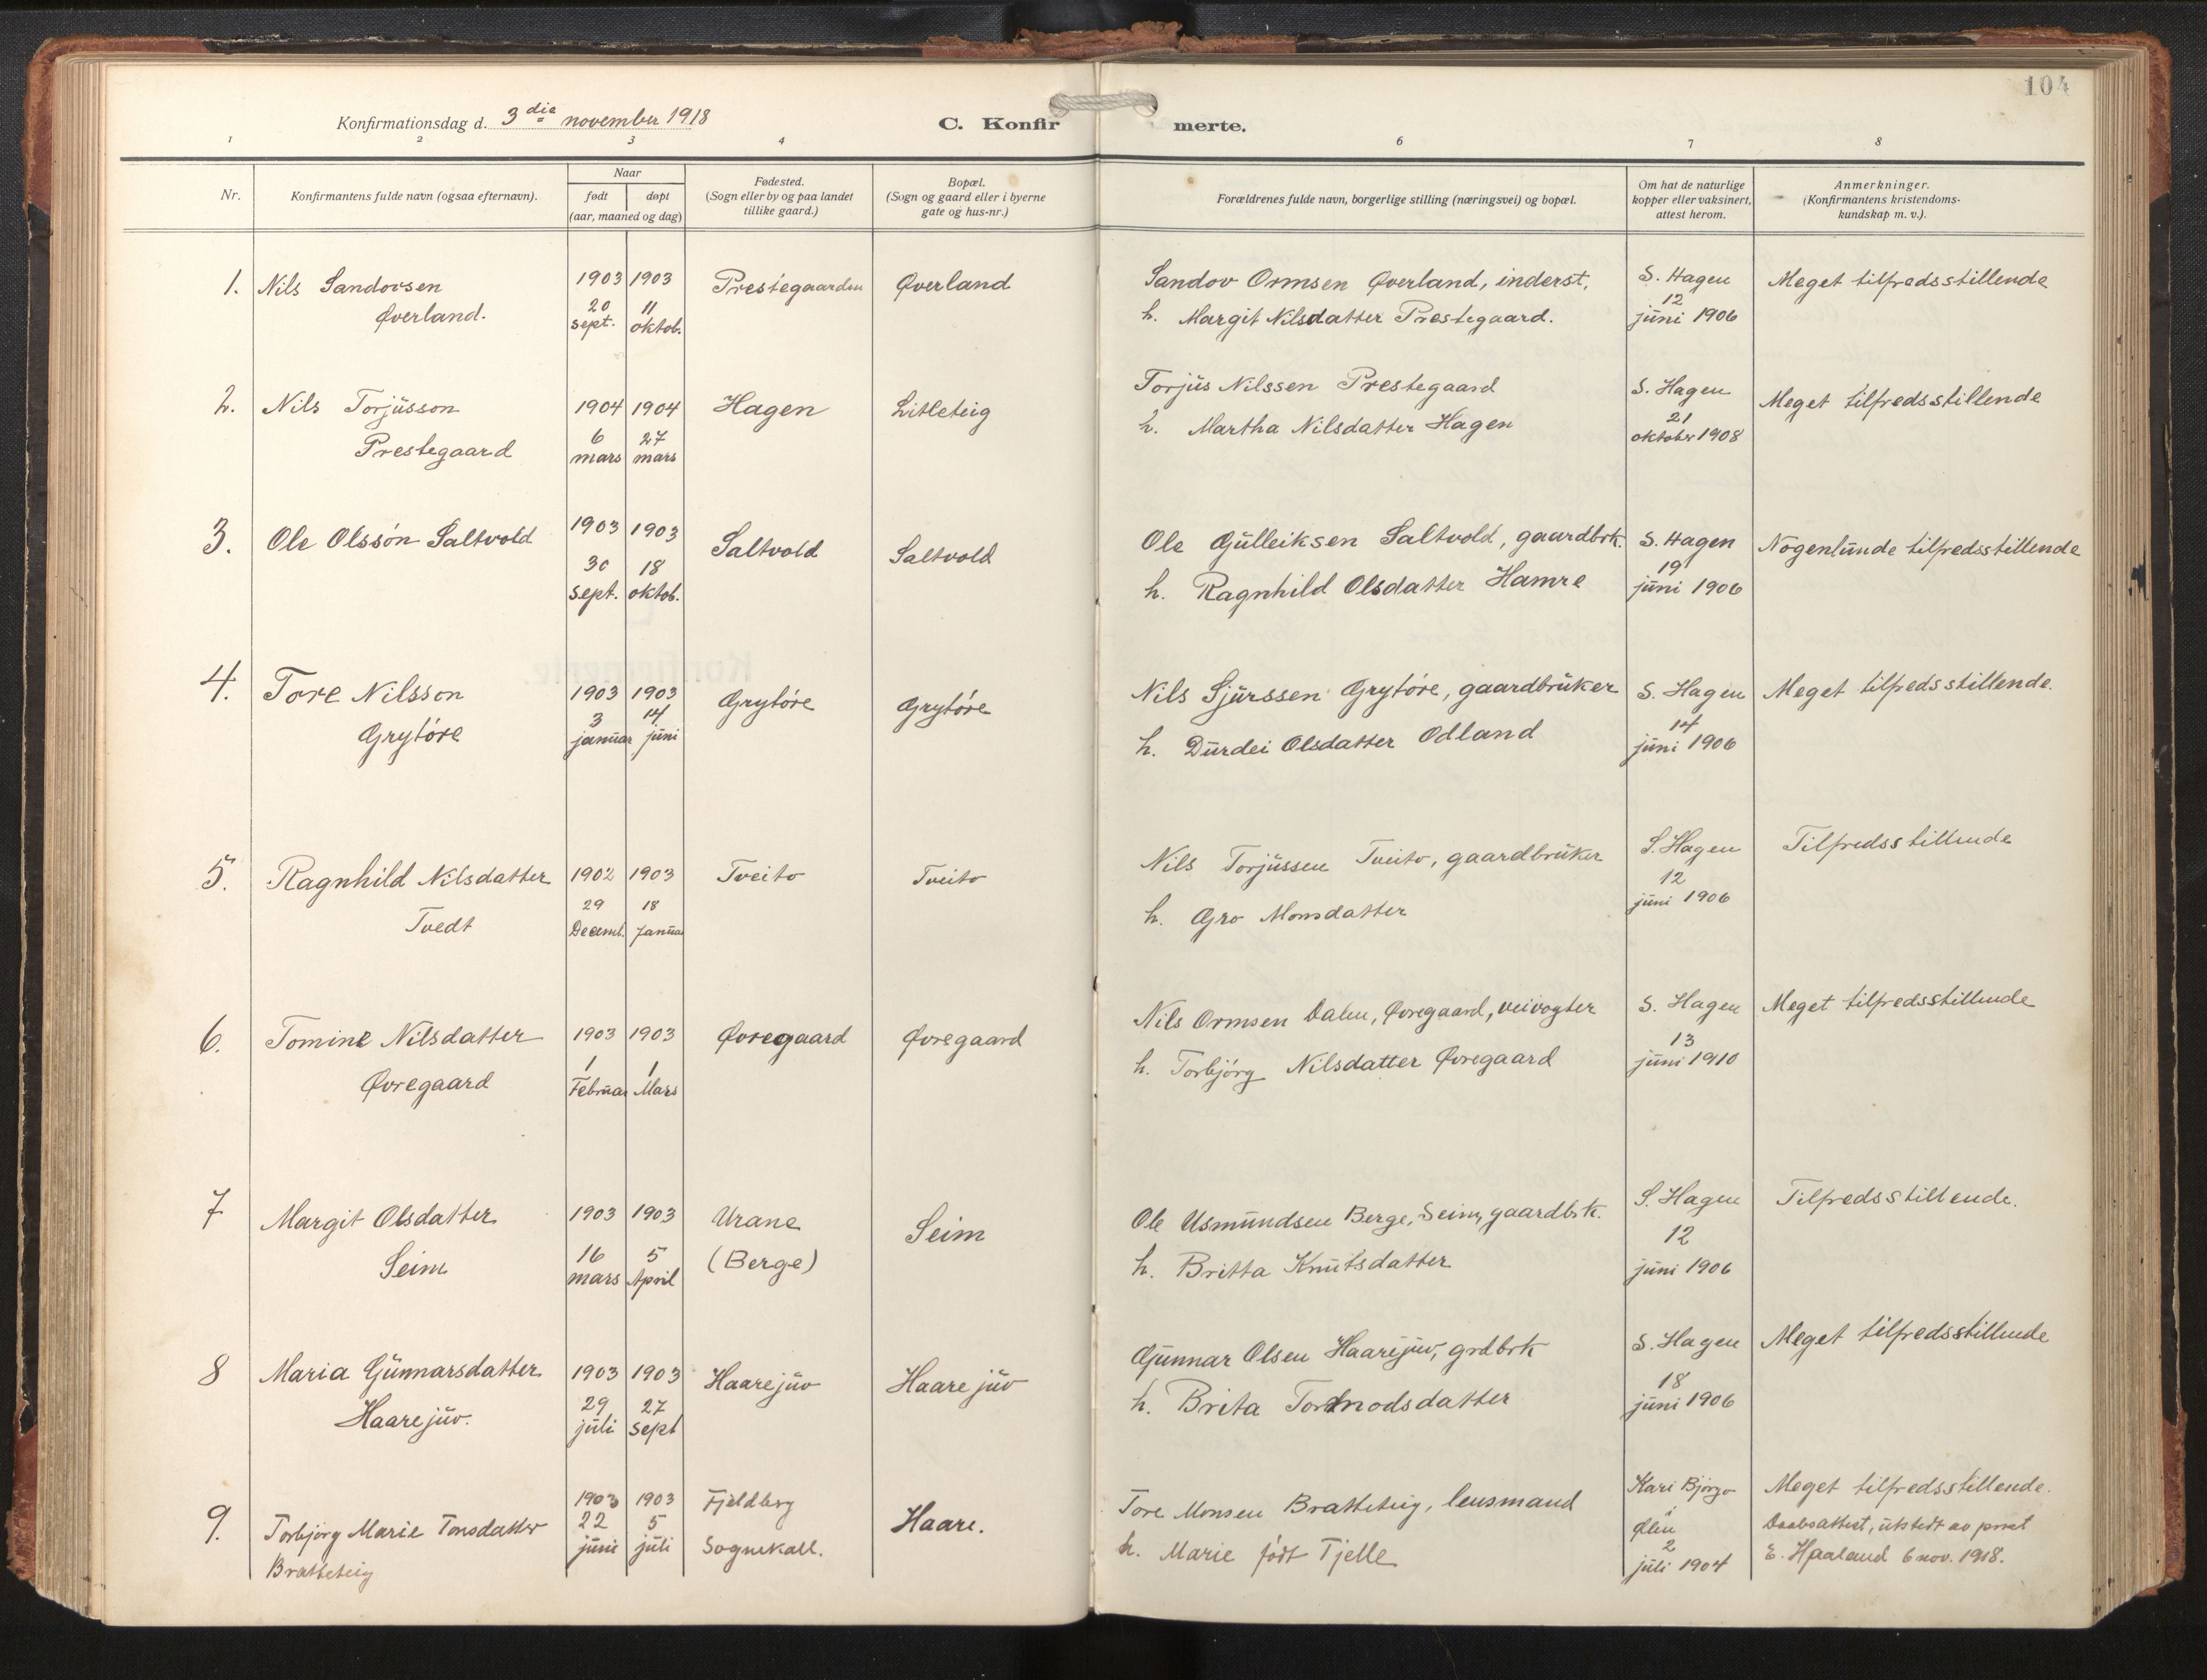 104
Konfirmationsdag d. 3 die november 1918
C. Konfirmerte.
1 2 3 4 6 7 8
Nr.
Konfirmantens fulde navn (ogsaa efternavn).
Naar
født døpt
(aar, maaned og dag)
Fødested.
(Sogn eller by og paa landet
tillike gaard.)
Bopæl.
(Sogn og gaard eller i byerne
gate og hus-nr.)
Forældrenes fulde navn, borgerlige stilling (næringsvei) og bopæl.
Om hat de naturlige
kopper eller vaksinert,
attest herom.
Anmerkninger.
(Konfirmantens kristendoms-
kundskap m. v.).
1. Nils Sandovsen 1903 1903 Prestegaarden Øverland Sandov Ormsen Øverland, inderst, S. Hagen Meget tilfredsstillende
Øverland. 20 sept. 11 oktob. h. Margit Nilsdatter Prestegaard. 12 juni 1906
2. Nils Torjusson 1904 1904 Hagen Litleteig Torjus Nilssen Prestegaard S. Hagen Meget tilfredsstillende
Prestegaard 6 mars 27 mars h. Martha Nilsdatter Hagen 21 oktober 1908
3. Ole Olsson Saltvold 1903 1903 Saltvold Saltvold Ole Gulleiksen Saltvold, gaardbrk. S. Hagen Nogenlunde tilfredsstillende
30 sept. 18 oktob. h. Ragnhild Olsdatter Hamre 19 juni 1906
4. Tore Nilsson 1903 1903 Grytøre Grytøre Nils Sjurssen Grytøre, gaardbruker S. Hagen Meget tilfredsstillende.
Grytøre 3 januar 14 juni h. Durdei Olsdatter Odland 14 juni 1906
5. Ragnhild Nilsdatter 1902 1903 Tveito Tveito Nils Torjussen Tveito, gaardbruker S. Hagen Tilfredsstillende
Tvedt 29 Decemb. 18 Januar h. Gro Monsdatter 12 juni 1906
6. Tomine Nilsdatter 1903 1903 Øvregaard Øvregaard Nils Ormsen Dalen, Øvregaard, veivogter S. Hagen Meget tilfredsstillende
Øvregaard 1 Februar 1 Mars h. Torbjörg Nilsdatter Øvregaard 13 juni 1910
7 Margit Olsdatter 1903 1903 Urane Seim Ole Asmundsen Berge, Seim, gaardbrk. S. Hagen Tilfredsstillende.
Seim 16 mars 5 April (Berge) h. Britta Knutsdatter 12 juni 1906
8 Maria Gunnarsdatter 1903 1903 Haarejuv Haarejuv Gunnar Olsen Haarejuv, grdbrk S. Hagen Meget tilfredsstillende
Haarejuv. 29 juli 27 Sept h. Brita Tormodsdatter 18 juni 1906
9. Torbjörg Marie Toresdatter 1903 1903 Fjeldberg Haare. Tore Monsen Bratteteig, lensmand Kari Bjorgo Meget tilfredsstillende.
Bratteteig 22 juni 5 juli Sognekall. h. Marie født Tjelle i Ølen 2 juli 1904 Daabsattest, utstedt av prost
E. Haaland 6 nov. 1918.